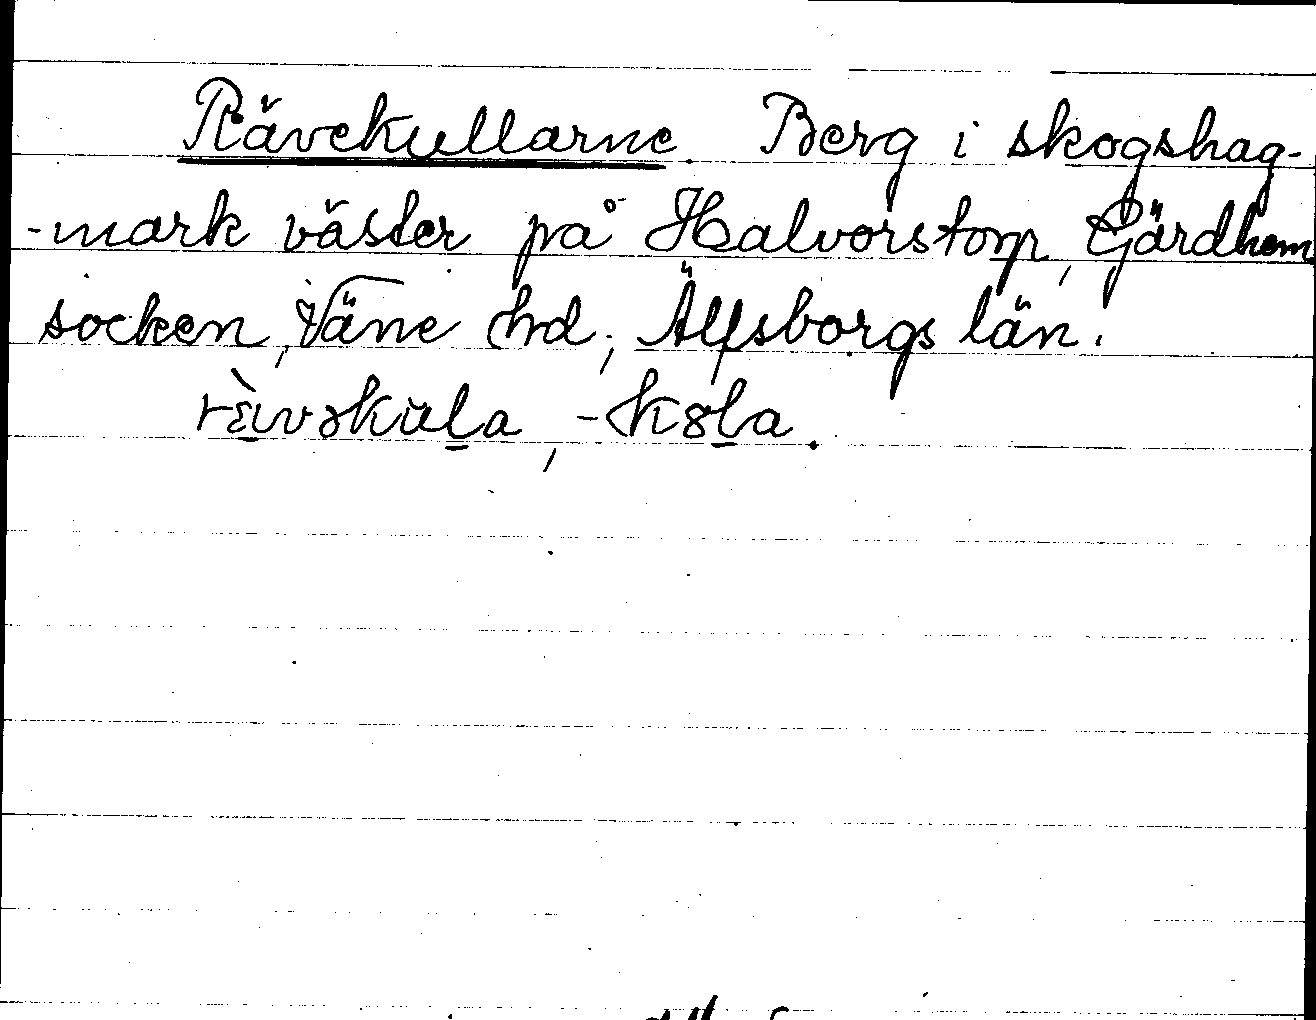 Rävekullarne. Berg i skogshag-
-mark väster på Halvorstorp, Gärdhem
socken, Väne hd, Älfsborgs län.
rὲwəkula, -kɵla.